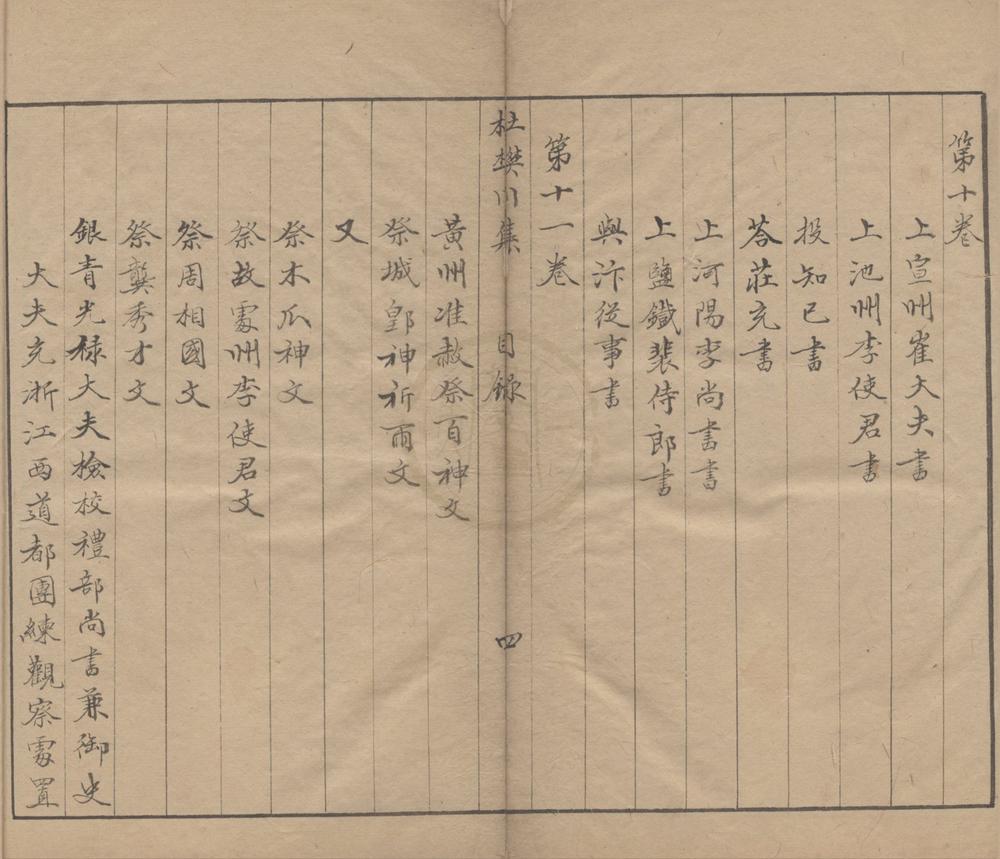 第十卷
上宣州崔大夫書
上池州李使君書
投知己書
荅莊充書
上河陽李尚書書
上鹽鐵裴侍郎書
與汴從事書
第十一卷
杜樊川集 目錄 四
黃州准赦祭百神文
祭城隍神祈雨文
又
祭木瓜神文
祭故處州李使君文
祭周相國文
祭龔秀才文
銀青光祿大夫檢校禮部尚書兼御史
大夫充浙江西道都團練觀察處置